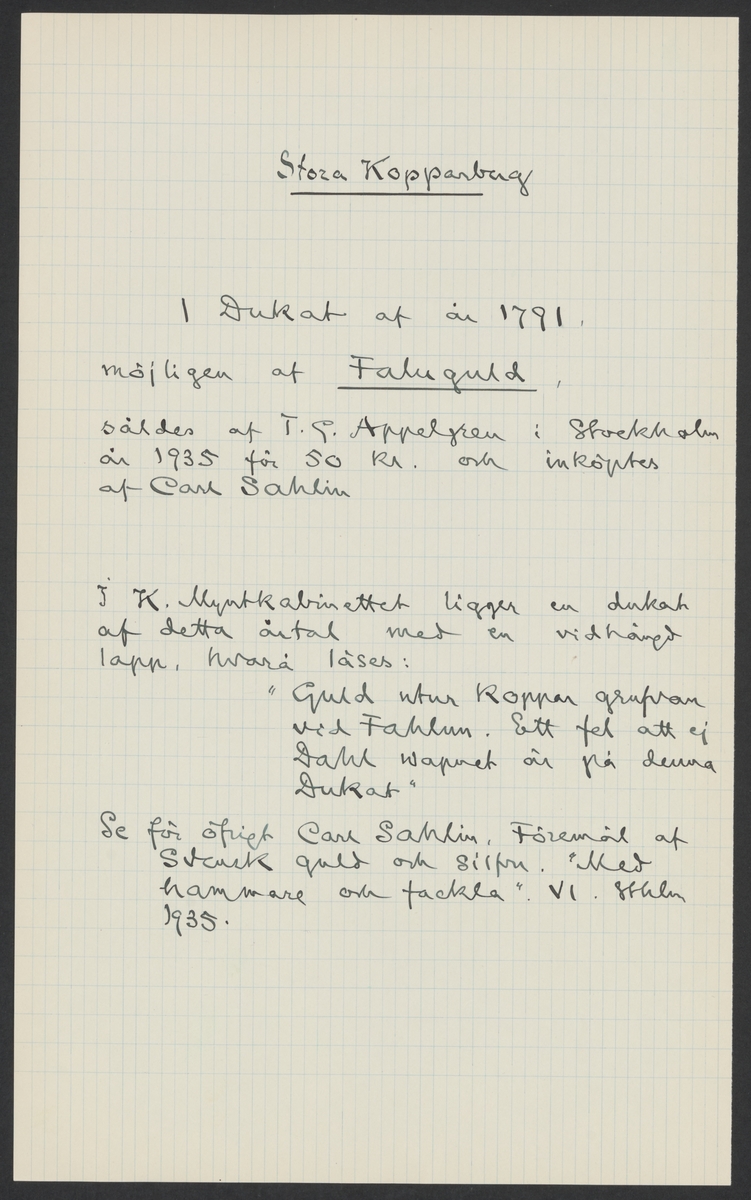 Stora Kopparberg
1 Dukat af år 1791,
möjligen af Faluguld,
såldes af T. G. Appelgren i Stockholm
år 1935 för 50 kr. och inköptes
af Carl Sahlin
I K. Myntkabinettet ligger en dukat
af detta årtal med en vidhängd
lapp, hvarå läses:
"Guld utur Koppar grufvan
vid Fahlun. Ett fel att ej
Dahl wapnet är på denna
Dukat"
Se för öfrigt Carl Sahlin, Föremål af
Svensk guld och silfver. "Med
hammare och fackla". VI. Sthlm
1935.